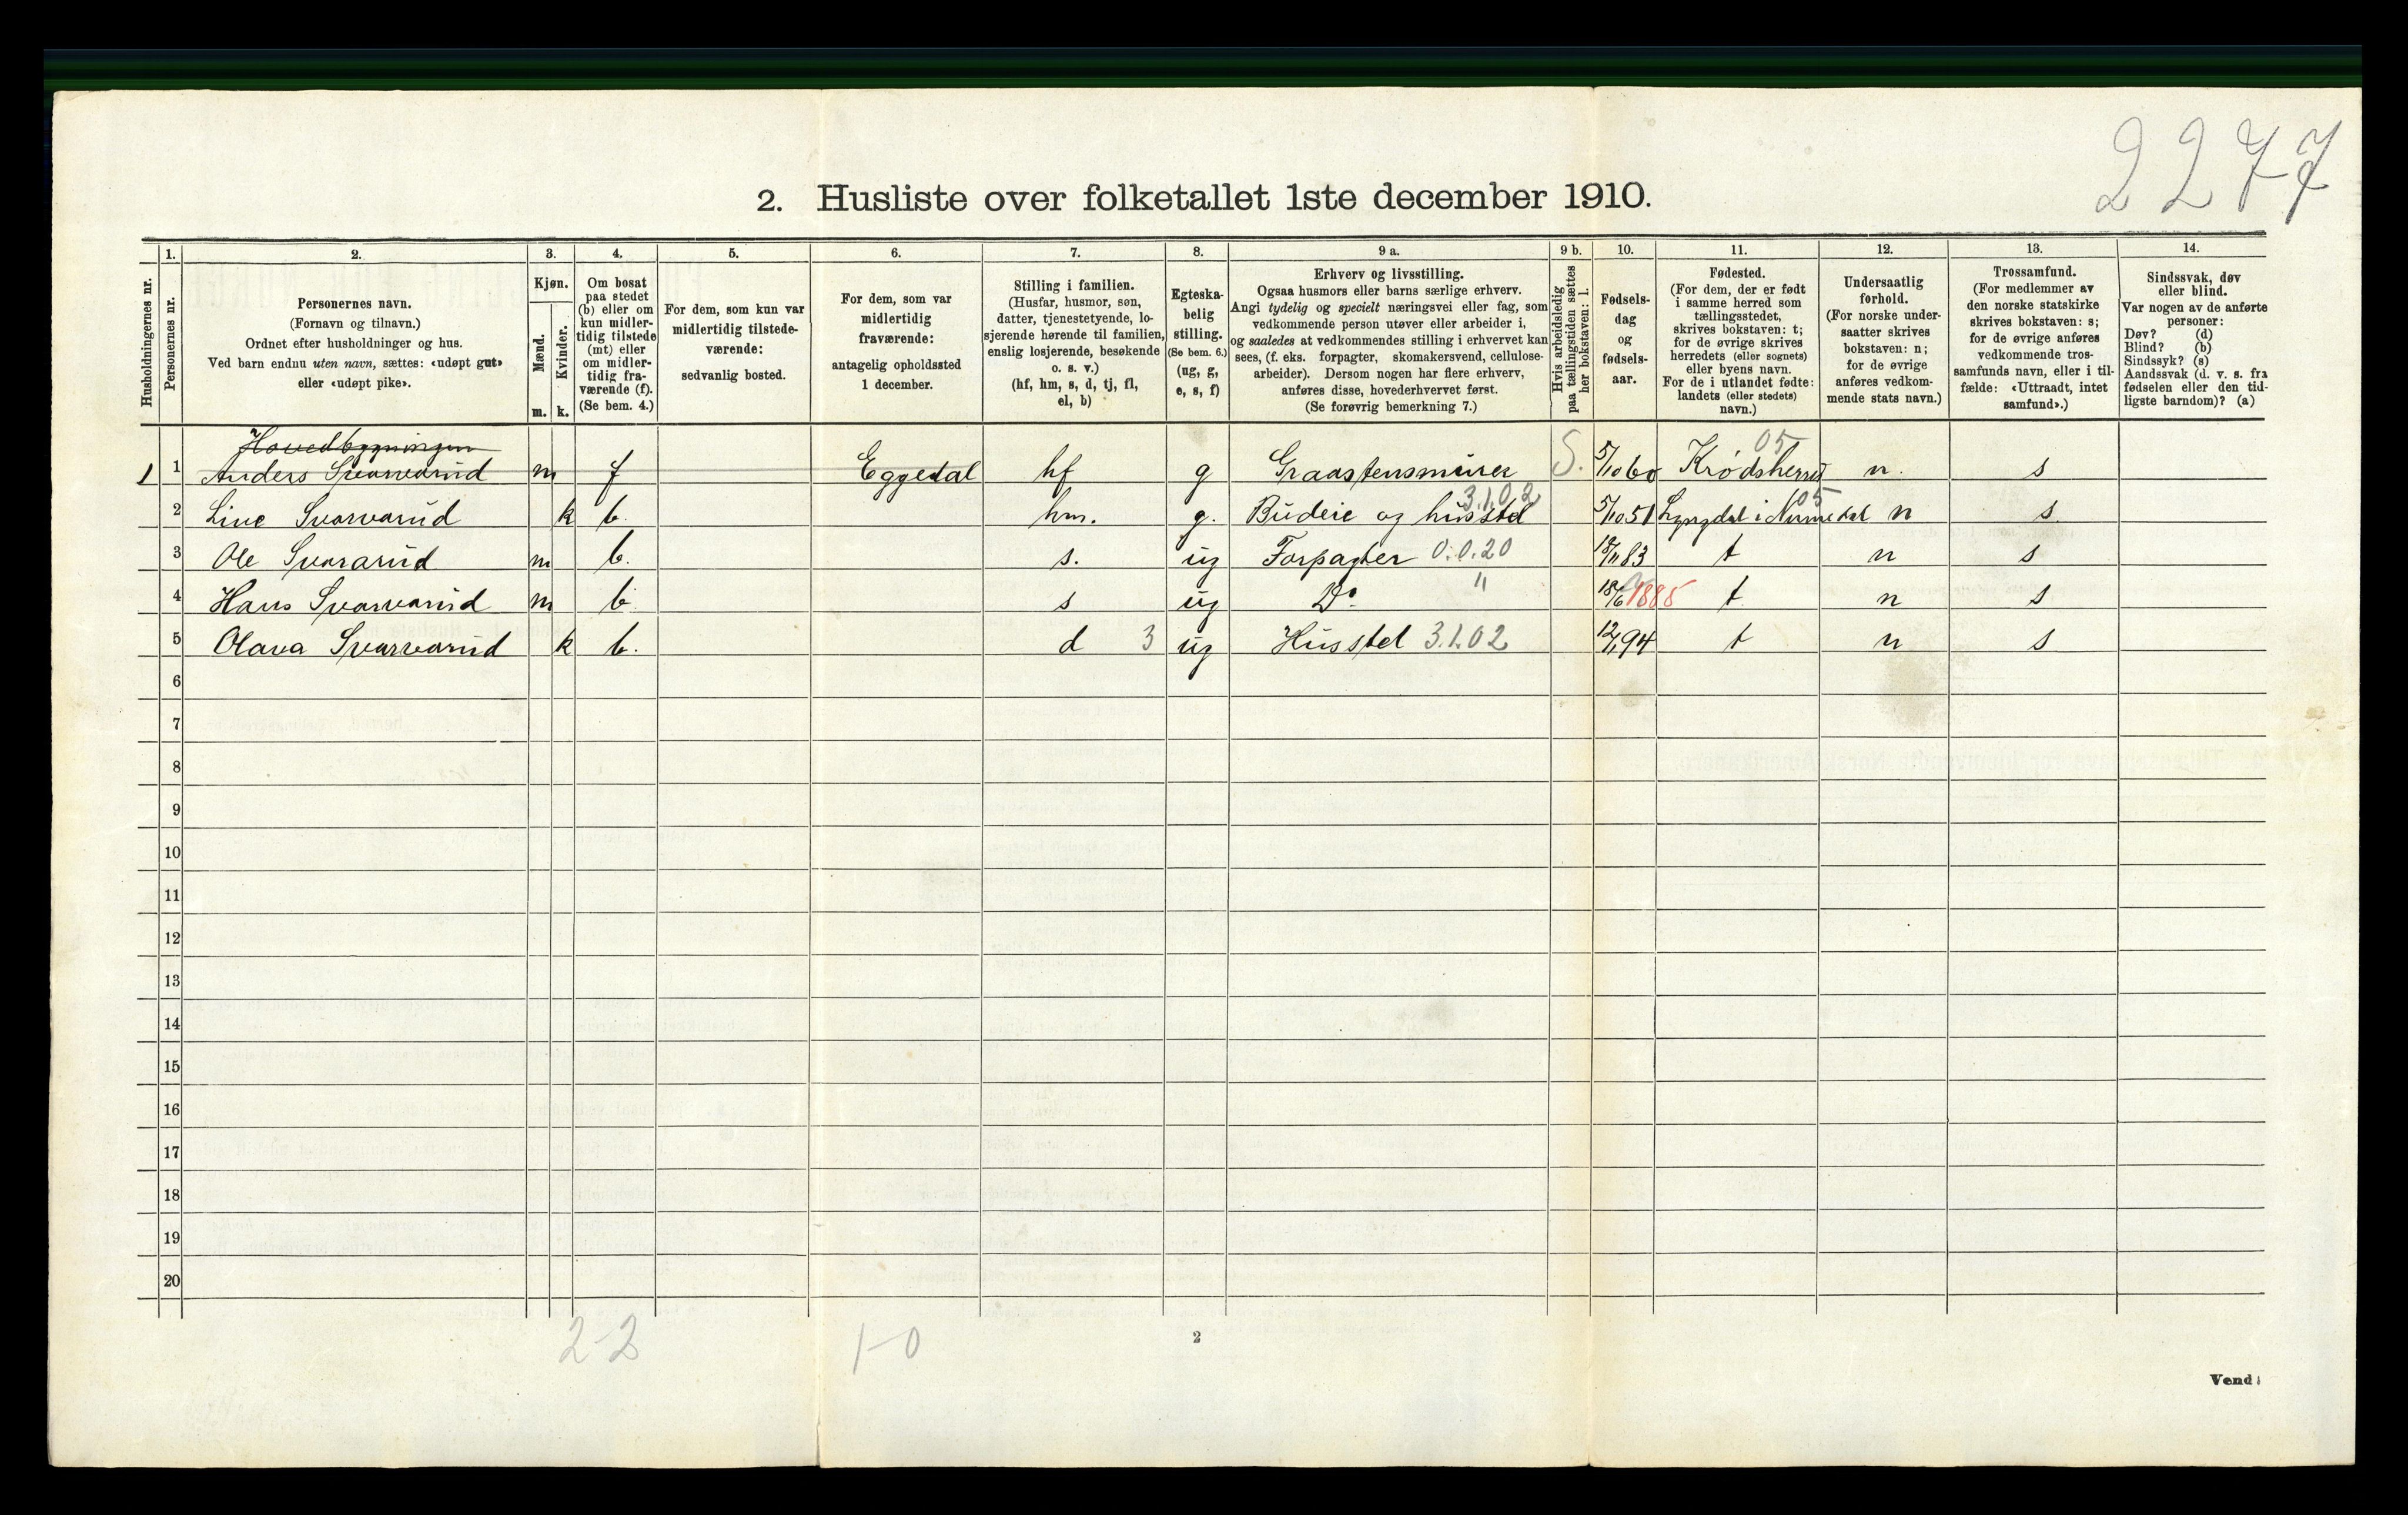 2277
2. Husliste over folketallet 1ste december 1910.
Husholdningernes nr.
1.
Personernes nr.
2.
Personernes navn.
(Fornavn og tilnavn.)
Ordnet efter husholdninger og hus.
Ved barn endnu uten navn, sættes: «udøpt gut»
eller «udøpt pike».
3.
Kjøn.
Mænd.
Kvinder.
m. k.
4.
Om bosat
paa stedet
(b) eller om
kun midler-
tidig tilstede
(mt) eller
om midler-
tidig fra-
værende (f).
(Se bem. 4.)
5.
For dem, som kun var
midlertidig tilstede-
værende:
sedvanlig bosted.
6.
For dem, som var
midlertidig
fraværende:
antagelig opholdssted
1 december.
7.
Stilling i familien.
(Husfar, husmor, søn,
datter, tjenestetyende, lo-
sjerende hørende til familien,
enslig losjerende, besøkende
o. s. v.)
(hf, hm, s, d, tj, fl,
el, b)
8.
Egteska-
belig
stilling.
(Se bem. 6.)
(ug, g,
e, s, f)
9 a.
Erhverv og livsstilling.
Ogsaa husmors eller barns særlige erhverv.
Angi tydelig og specielt næringsvei eller fag, som
vedkommende person utøver eller arbeider i,
og saaledes at vedkommendes stilling i erhvervet kan
sees, (f. eks. forpagter, skomakersvend, cellulose-
arbeider). Dersom nogen har flere erhverv,
anføres disse, hovederhvervet først.
(Se forøvrig bemerkning 7.)
9 b.
Hvis arbeidsledig
paa tællingstiden sættes
her bokstaven: l.
10.
Fødsels-
dag
og
fødsels-
aar.
11.
Fødested.
(For dem, der er født
i samme herred som
tællingsstedet,
skrives bokstaven: t;
for de øvrige skrives
herredets (eller sognets)
eller byens navn.
For de i utlandet fødte:
landets (eller stedets)
navn.)
12.
Undersaatlig
forhold.
(For norske under-
saatter skrives
bokstaven: n;
for de øvrige
anføres vedkom-
mende stats navn.)
13.
Trossamfund.
(For medlemmer av
den norske statskirke
skrives bokstaven: s;
for de øvrige anføres
vedkommende tros-
samfunds navn, eller i til-
fælde: «Uttraadt, intet
samfund».)
14.
Sindssvak, døv
eller blind.
Var nogen av de anførte
personer:
Døv? (d)
Blind? (b)
Sindssyk? (s)
Aandssvak (d. v. s. fra
fødselen eller den tid-
ligste barndom)? (a)
Hovedbygningen
1 1 Anders Svarvarud m f Eggedal hf g Graastensmurer S. 5/10 60 Krødsherred 05 n. s
2 Live Svarvarud k b. hm. g. Budeie og husstel 3.1.02 5/10 51 Lyngdal i Numedal 05 n s.
3 Ole Svararud m b. s. ug Forpagter 0.0.20 18/11 83 t n s
4 Hans Svarvarud m b. s ug Do. " 18/6 1885 t n s
5 Olava Svarvarud k b. d 3 ug Husstel 3.1.02 12/1 94 t n s
6
7
8
9
10
11
12
13
14
15
16
17
18
19
20
2-2 1-0
2
Vend